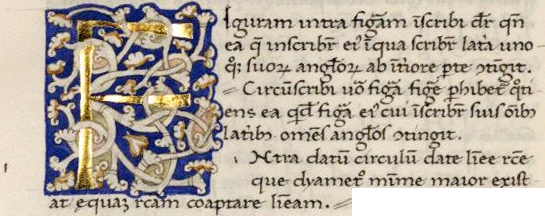 Figuram intra figᷓam īscribi dr̄ qn̄
ea q̄ inscribr̄ eiꝰ īqua scribr̄ lat᷑a uno-
qꝫ suoꝝ angl̄oꝝ ab īt᷑iore ꝑte ↄtīgit.
Circūscribi uō figᷓa figᷓe ꝑhibet᷑ qt̄i-
ens ea qd̄ figᷓa eiꝰ cui īscribr̄ suis oīb᷒
lat᷑ib᷒ omēs angl̄os ↄtingit.
Ntra datū circulū date līee rc̄e
que dyamet᷑o mīme maior exist-
at equaꝫ rc̄am coaptare līeam.